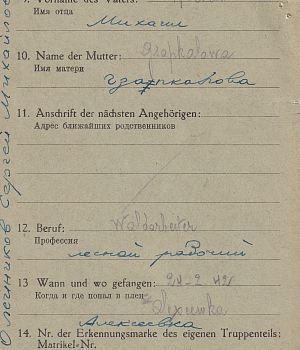 9. Vorname des Vaters:
Имя отца
Михаил
10. Name der Mutter:
Имя матери
11. Anschrift der nächsten Angehörigen:
Адрес ближайших родственников
12. Beruf: Waldarbeiter
Профессия
лесной рабочий
13 Wann und wo gefangen: 24-2 42
Когда и где попал в плен
Алексеевка
14. Nr. der Erkennungsmarke des eigenen Truppenteils:
Matrikel-Nr.
Олейников Сергей Михайлов